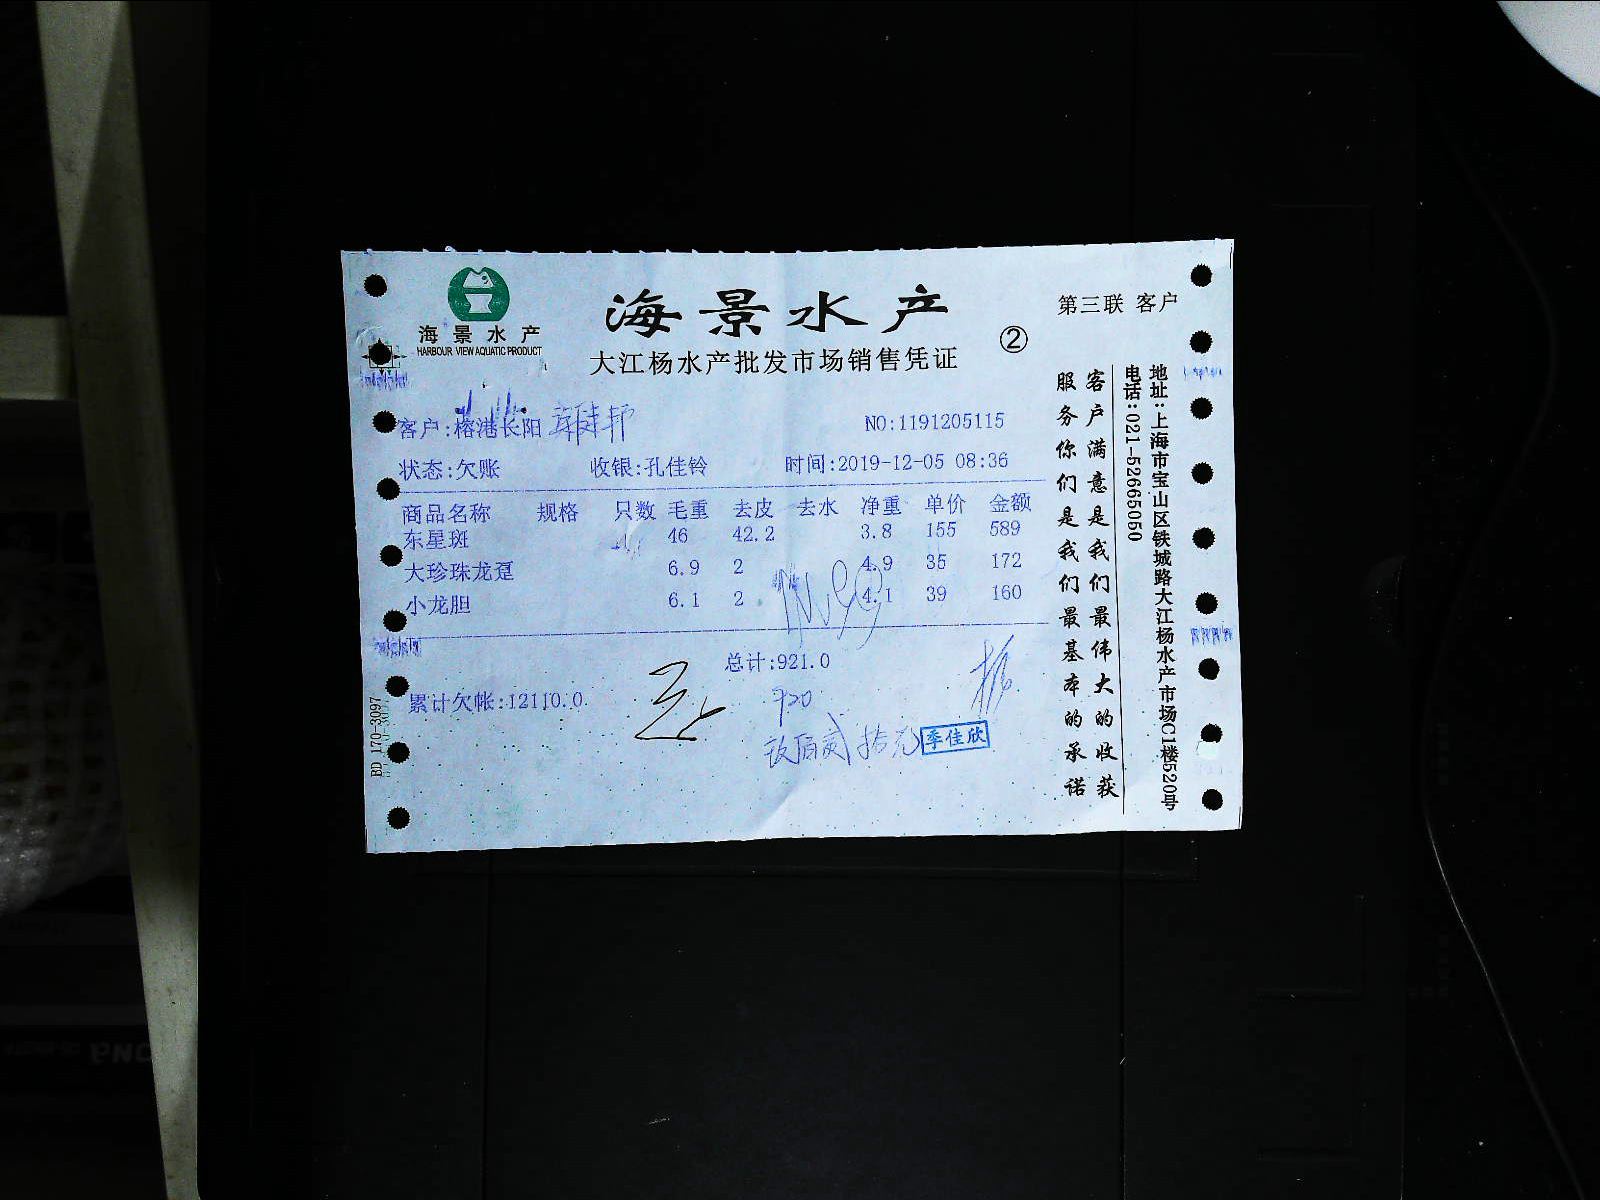 海景水产
HARBOUR VIEW AQUATIC PRODUCT
海景水产
大江杨水产批发市场销售凭证
②
第三联 客户
客户:榕港长阳
NO:1191205115
状态:欠账 收银:孔佳铃 时间:2019-12-05 08:36
商品名称 规格 只数 毛重 去皮 去水 净重 单价 金额
东星斑 46 42.2 3.8 155 589
大珍珠龙趸 6.9 2 4.9 35 172
小龙胆 6.1 2 4.1 39 160
总计:921.0
累计欠帐:12110.0
920
玖佰贰拾元
季佳欣
客户满意是我们最伟大的收获
服务你们是我们最基本的承诺
地址:上海市宝山区铁城路大江杨水产市场C1楼520号
电话:021-52665050
BD 170-3097